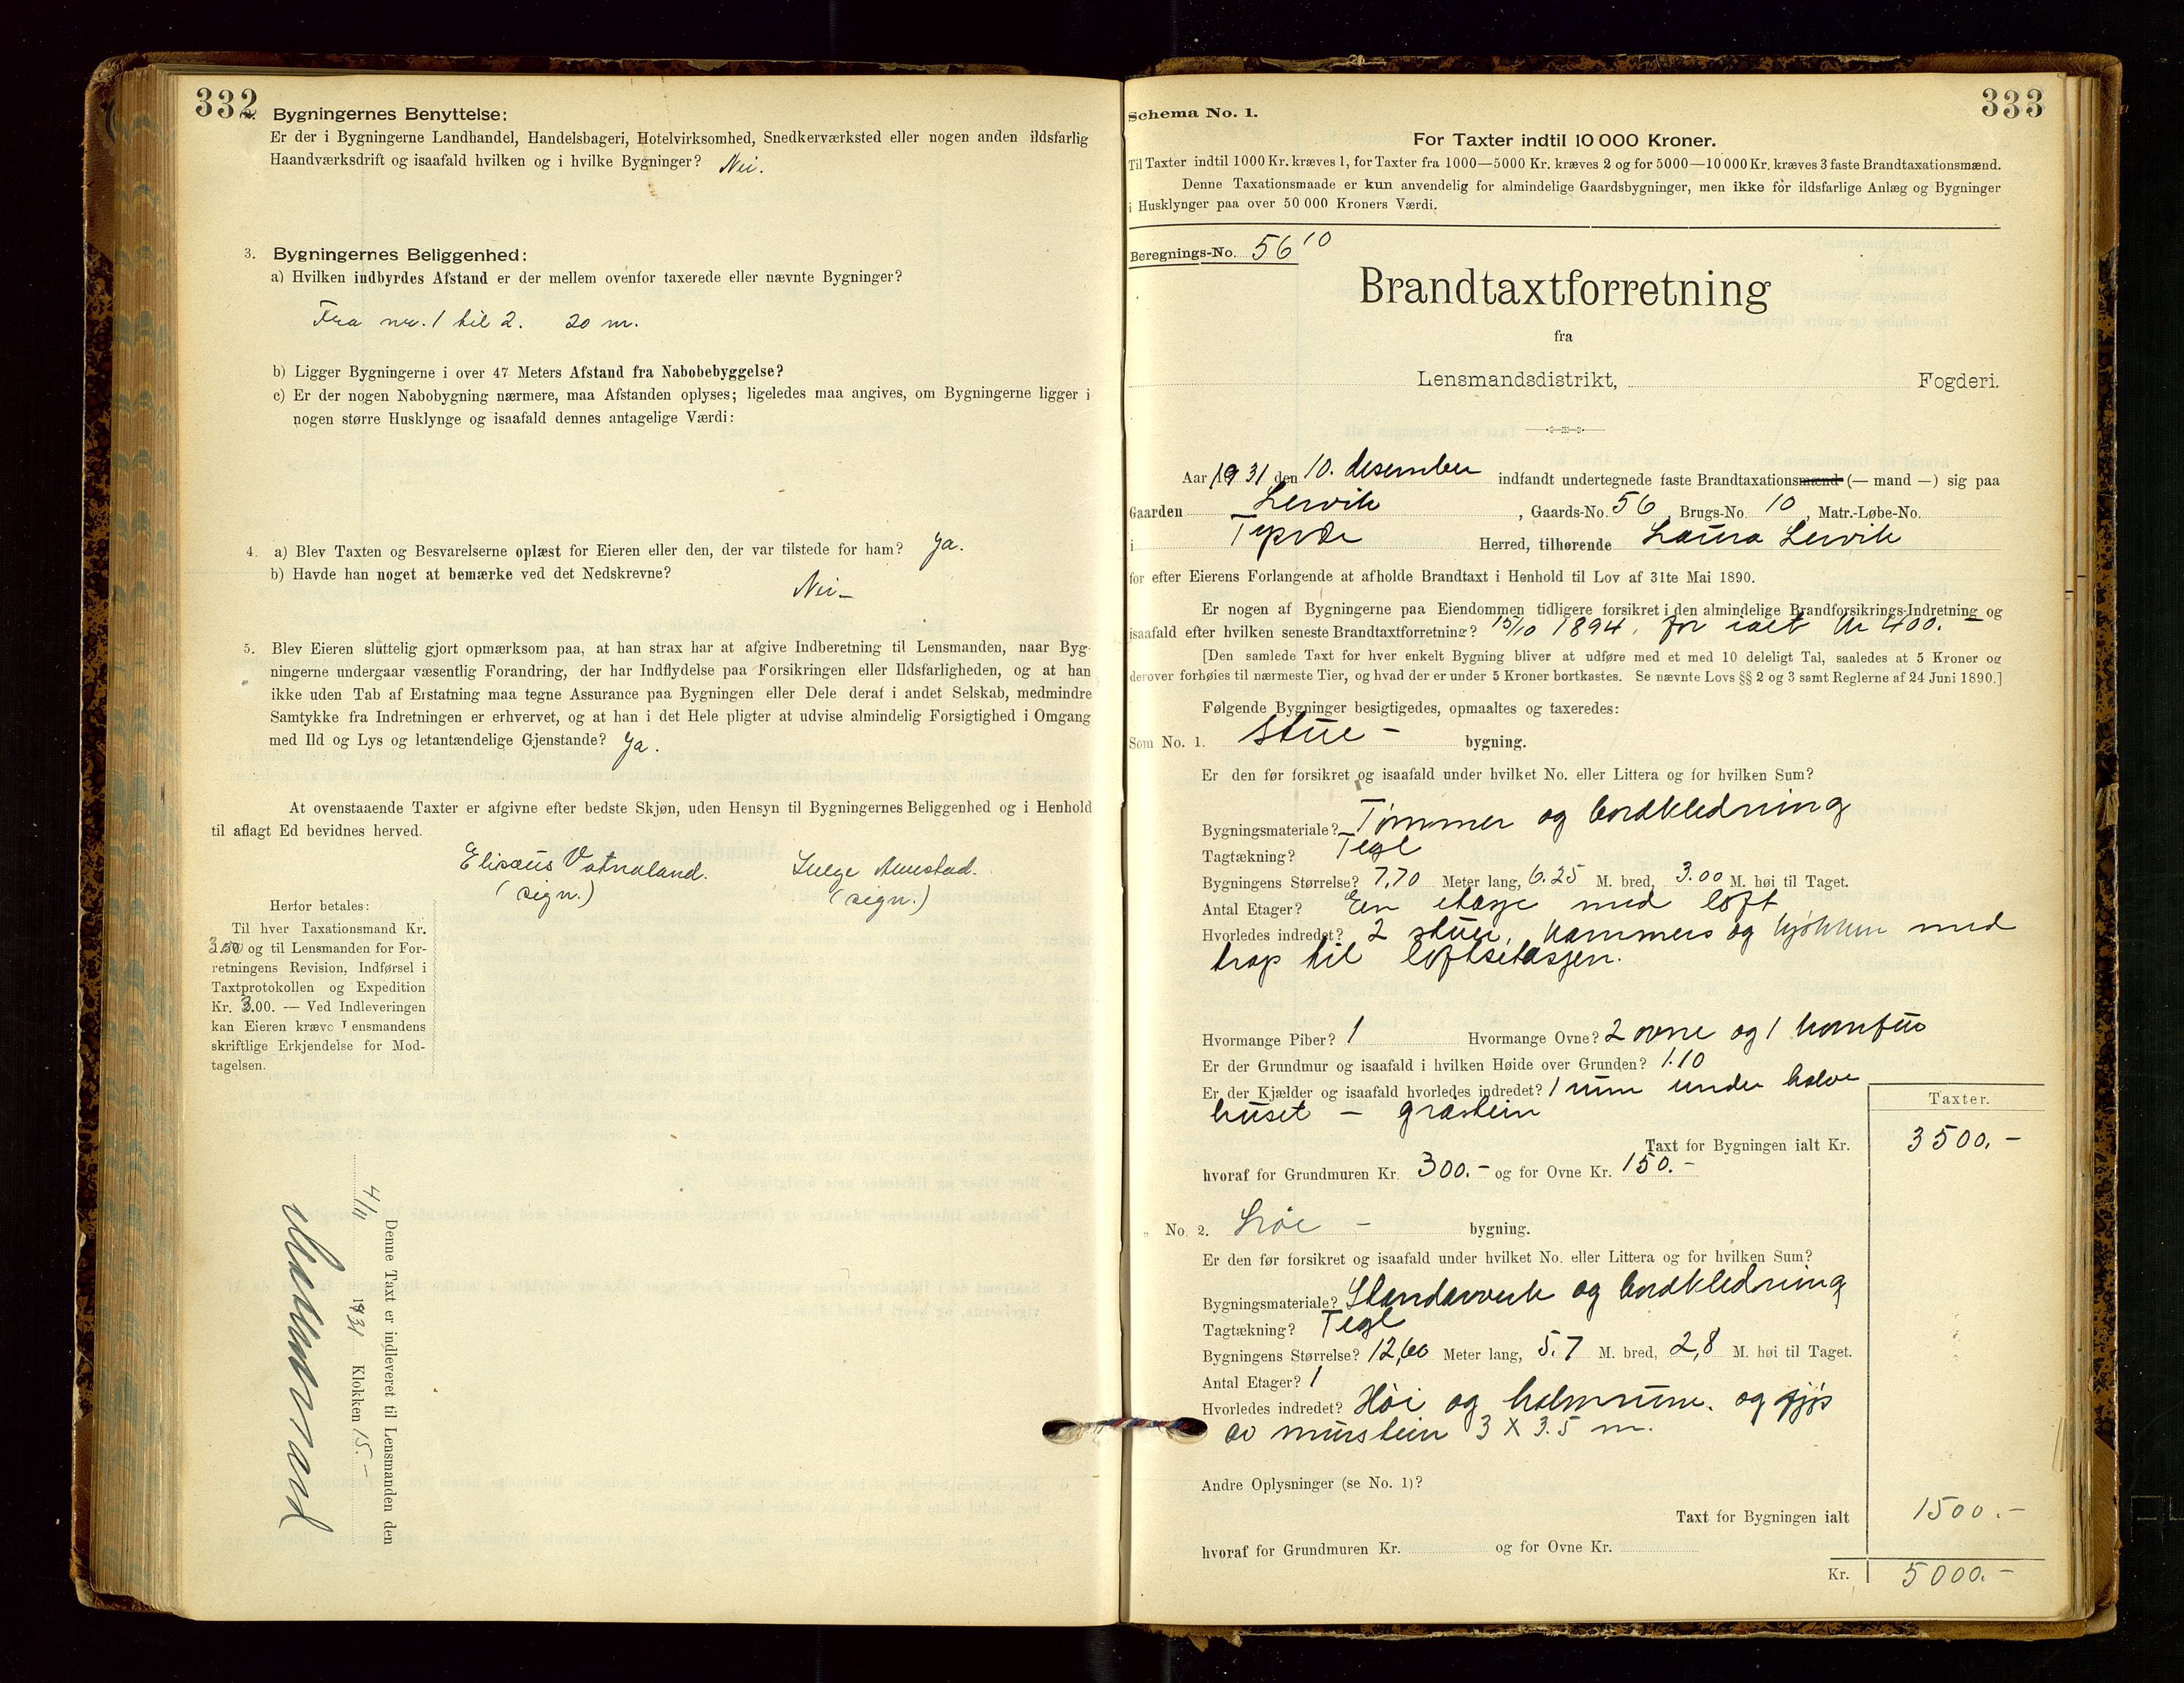 332
Bygningernes Benyttelse:
Er der i Bygningerne Landhandel, Handelsbageri, Hotelvirksomhed, Snedkerværksted eller nogen anden ildsfarlig
Haandværksdrift og isaafald hvilken og i hvilke Bygninger? Nei.
3. Bygningernes Beliggenhed:
a) Hvilken indbyrdes Afstand er der mellem ovenfor taxerede eller nævnte Bygninger?
Fra nr. 1 til 2. 20 m.
b) Ligger Bygningerne i over 47 Meters Afstand fra Nabobebyggelse?
c) Er der nogen Nabobygning nærmere, maa Afstanden oplyses; ligeledes maa angives, om Bygningerne ligger i
nogen større Husklynge og isaafald dennes antagelige Værdi:
4. a) Blev Taxten og Besvarelserne oplæst for Eieren eller den, der var tilstede for ham? Ja.
b) Havde han noget at bemærke ved det Nedskrevne?
Nei-
5. Blev Eieren sluttelig gjort opmærksom paa, at han strax har at afgive Indberetning til Lensmanden, naar Byg-
ningerne undergaar væsentlig Forandring, der har Indflydelse paa Forsikringen eller Ildsfarligheden, og at han
ikke uden Tab af Erstatning maa tegne Assurance paa Bygningen eller Dele deraf i andet Selskab, medmindre
Samtykke fra Indretningen er erhvervet, og at han i det Hele pligter at udvise almindelig Forsigtighed i Omgang
med Ild og Lys og letantændelige Gjenstande? Ja.
At ovenstaaende Taxter er afgivne efter bedste Skjøn, uden Hensyn til Bygningernes Beliggenhed og i Henhold
til aflagt Ed bevidnes herved.
Elisæus Vatnaland.
(sign.) (sign.)
Herfor betales:
Til hver Taxationsmand Kr.
3.00 og til Lensmanden for For-
retningens Revision, Indførsel i
Taxtprotokollen og Expedition
Kr. 3.00. — Ved Indleveringen
kan Eieren kræve Lensmandens
skriftlige Erkjendelse for Mod-
tagelsen.
Denne Taxt er indleveret til Lensmanden den
4/11 1931 Klokken 15.-
333
Schema No. 1.
For Taxter indtil 10 000 Kroner.
Til Taxter indtil 1000 Kr. kræves 1, for Taxter fra 1000—5000 Kr. kræves 2 og for 5000—10 000 Kr. kræves 3 faste Brandtaxationsmænd.
Denne Taxationsmaade er kun anvendelig for almindelige Gaardsbygninger, men ikke for ildsfarlige Anlæg og Bygninger
i Husklynger paa over 50 000 Kroners Værdi.
Beregnings-No. 56 10
Brandtaxtforretning
fra
Lensmandsdistrikt, Fogderi.
Aar 1931 den 10. desember indfandt undertegnede faste Brandtaxationsmænd (— mand —) sig paa
Gaarden Lervik, Gaards-No. 56, Brugs-No. 10, Matr.-Løbe-No.
i Tysvær Herred, tilhørende Laura Lervik
for efter Eierens Forlangende at afholde Brandtaxt i Henhold til Lov af 31te Mai 1890.
Er nogen af Bygningerne paa Eiendommen tidligere forsikret i den almindelige Brandforsikrings-Indretning og
isaafald efter hvilken seneste Brandtaxtforretning? 15/10 1894, for ialt kr 400.-
[Den samlede Taxt for hver enkelt Bygning bliver at udføre med et med 10 deleligt Tal, saaledes at 5 Kroner og
derover forhøies til nærmeste Tier, og hvad der er under 5 Kroner bortkastes. Se nævnte Lovs §§ 2 og 3 samt Reglerne af 24 Juni 1890.]
Følgende Bygninger besigtigedes, opmaaltes og taxeredes:
Som No. 1. Stue - bygning.
Er den før forsikret og isaafald under hvilket No. eller Littera og for hvilken Sum?
Bygningsmateriale? Tømmer og bordkledning
Tagtækning? Tegl
Bygningens Størrelse? 7,70 Meter lang, 6.25 M. bred, 3.00 M. høi til Taget.
Antal Etager? Een etasje med loft
Hvorledes indredet? 2 stuer, kammers og kjøkken med
trap til loftsetasjen.
Hvormange Piber? 1 Hvormange Ovne? 2 ovne og 1 komfur
Er der Grundmur og isaafald i hvilken Høide over Grunden? 1.10
Er der Kjælder og isaafald hvorledes indredet? 1 rum under halve
huset - gråstein
Taxter.
Taxt for Bygningen ialt Kr. 3500.-
hvoraf for Grundmuren Kr. 300.- og for Ovne Kr. 150.-
„ No. 2. Løe - bygning.
Er den før forsikret og isaafald under hvilket No. eller Littera og for hvilken Sum?
Bygningsmateriale? Standarverk og bordkledning
Tagtækning? Tegl
Bygningens Størrelse? 12,60 Meter lang, 5.7 M. bred, 2,8 M. høi til Taget.
Antal Etager? 1
Hvorledes indredet? Høi og halmrum. og fjøs
av murstein 3 x 3.5 m.
Andre Oplysninger (se No. 1)?
Taxt for Bygningen ialt 1500.-
hvoraf for Grundmuren Kr. og for Ovne Kr.
Kr. 5000.-